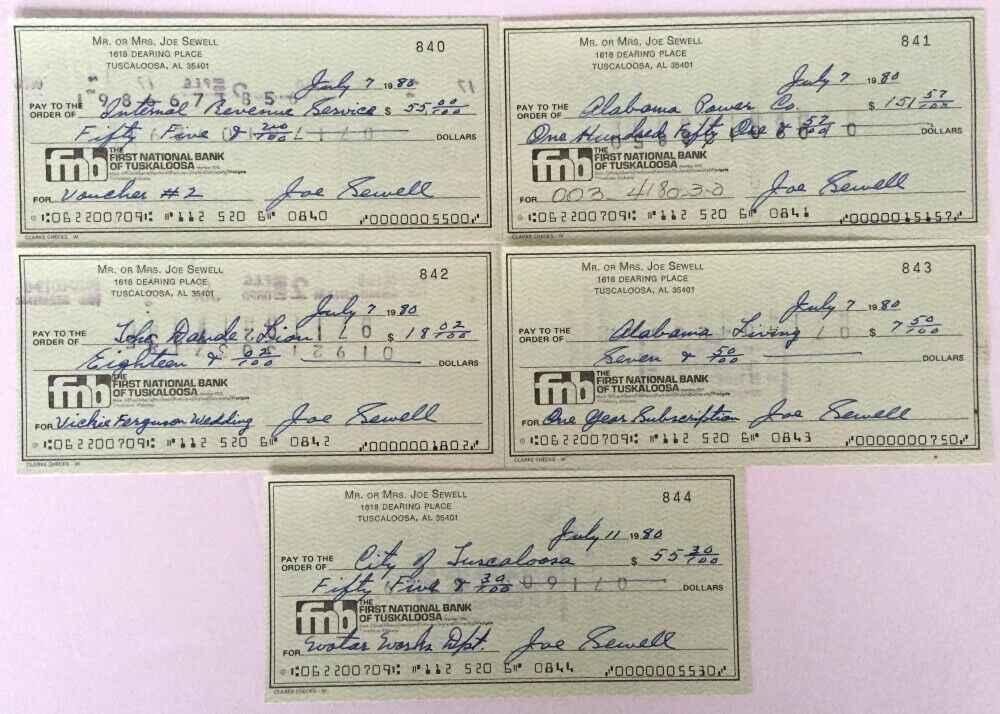 MR. OR MRS. JOE SEWELL
840
1618 DEARING PLACE
TUSCALOOSA, AL 35401
July 7 1980
PAY TO THE ORDER OF Internal Revenue Service $ 55.00/100
Fifty Five & 00/100 DOLLARS
fnb THE FIRST NATIONAL BANK OF TUSKALOOSA
FOR Voucher #2 Joe Sewell
⑆062200709⑆ ⑈112 520 6⑈ 0840 ⑈0000005500⑈
CLARKE CHECKS
MR. OR MRS. JOE SEWELL
841
1618 DEARING PLACE
TUSCALOOSA, AL 35401
July 7 1980
PAY TO THE ORDER OF Alabama Power Co. $ 151 57/100
One Hundred Fifty One & 57/100 DOLLARS
fnb THE FIRST NATIONAL BANK OF TUSKALOOSA
FOR 003-4180-3-0 Joe Sewell
⑆062200709⑆ ⑈112 520 6⑈ 0841 ⑈0000015157⑈
CLARKE CHECKS
MR. OR MRS. JOE SEWELL
842
1618 DEARING PLACE
TUSCALOOSA, AL 35401
July 7 1980
PAY TO THE ORDER OF The Dande Lion $ 18 02/100
Eighteen & 02/100 DOLLARS
fnb THE FIRST NATIONAL BANK OF TUSKALOOSA
FOR Vickie Ferguson Wedding Joe Sewell
⑆062200709⑆ ⑈112 520 6⑈ 0842 ⑈0000001802⑈
CLARKE CHECKS
MR. OR MRS. JOE SEWELL
843
1618 DEARING PLACE
TUSCALOOSA, AL 35401
July 7 1980
PAY TO THE ORDER OF Alabama Living $ 7 50/100
Seven & 50/100 DOLLARS
fnb THE FIRST NATIONAL BANK OF TUSKALOOSA
FOR One Year Subscription Joe Sewell
⑆062200709⑆ ⑈112 520 6⑈ 0843 ⑈0000000750⑈
CLARKE CHECKS
MR. OR MRS. JOE SEWELL
844
1618 DEARING PLACE
TUSCALOOSA, AL 35401
July 11 1980
PAY TO THE ORDER OF City of Tuscaloosa $ 55 30/100
Fifty Five & 30/100 DOLLARS
fnb THE FIRST NATIONAL BANK OF TUSKALOOSA
FOR Watar Works Dpt. Joe Sewell
⑆062200709⑆ ⑈112 520 6⑈ 0844 ⑈0000005530⑈
CLARKE CHECKS